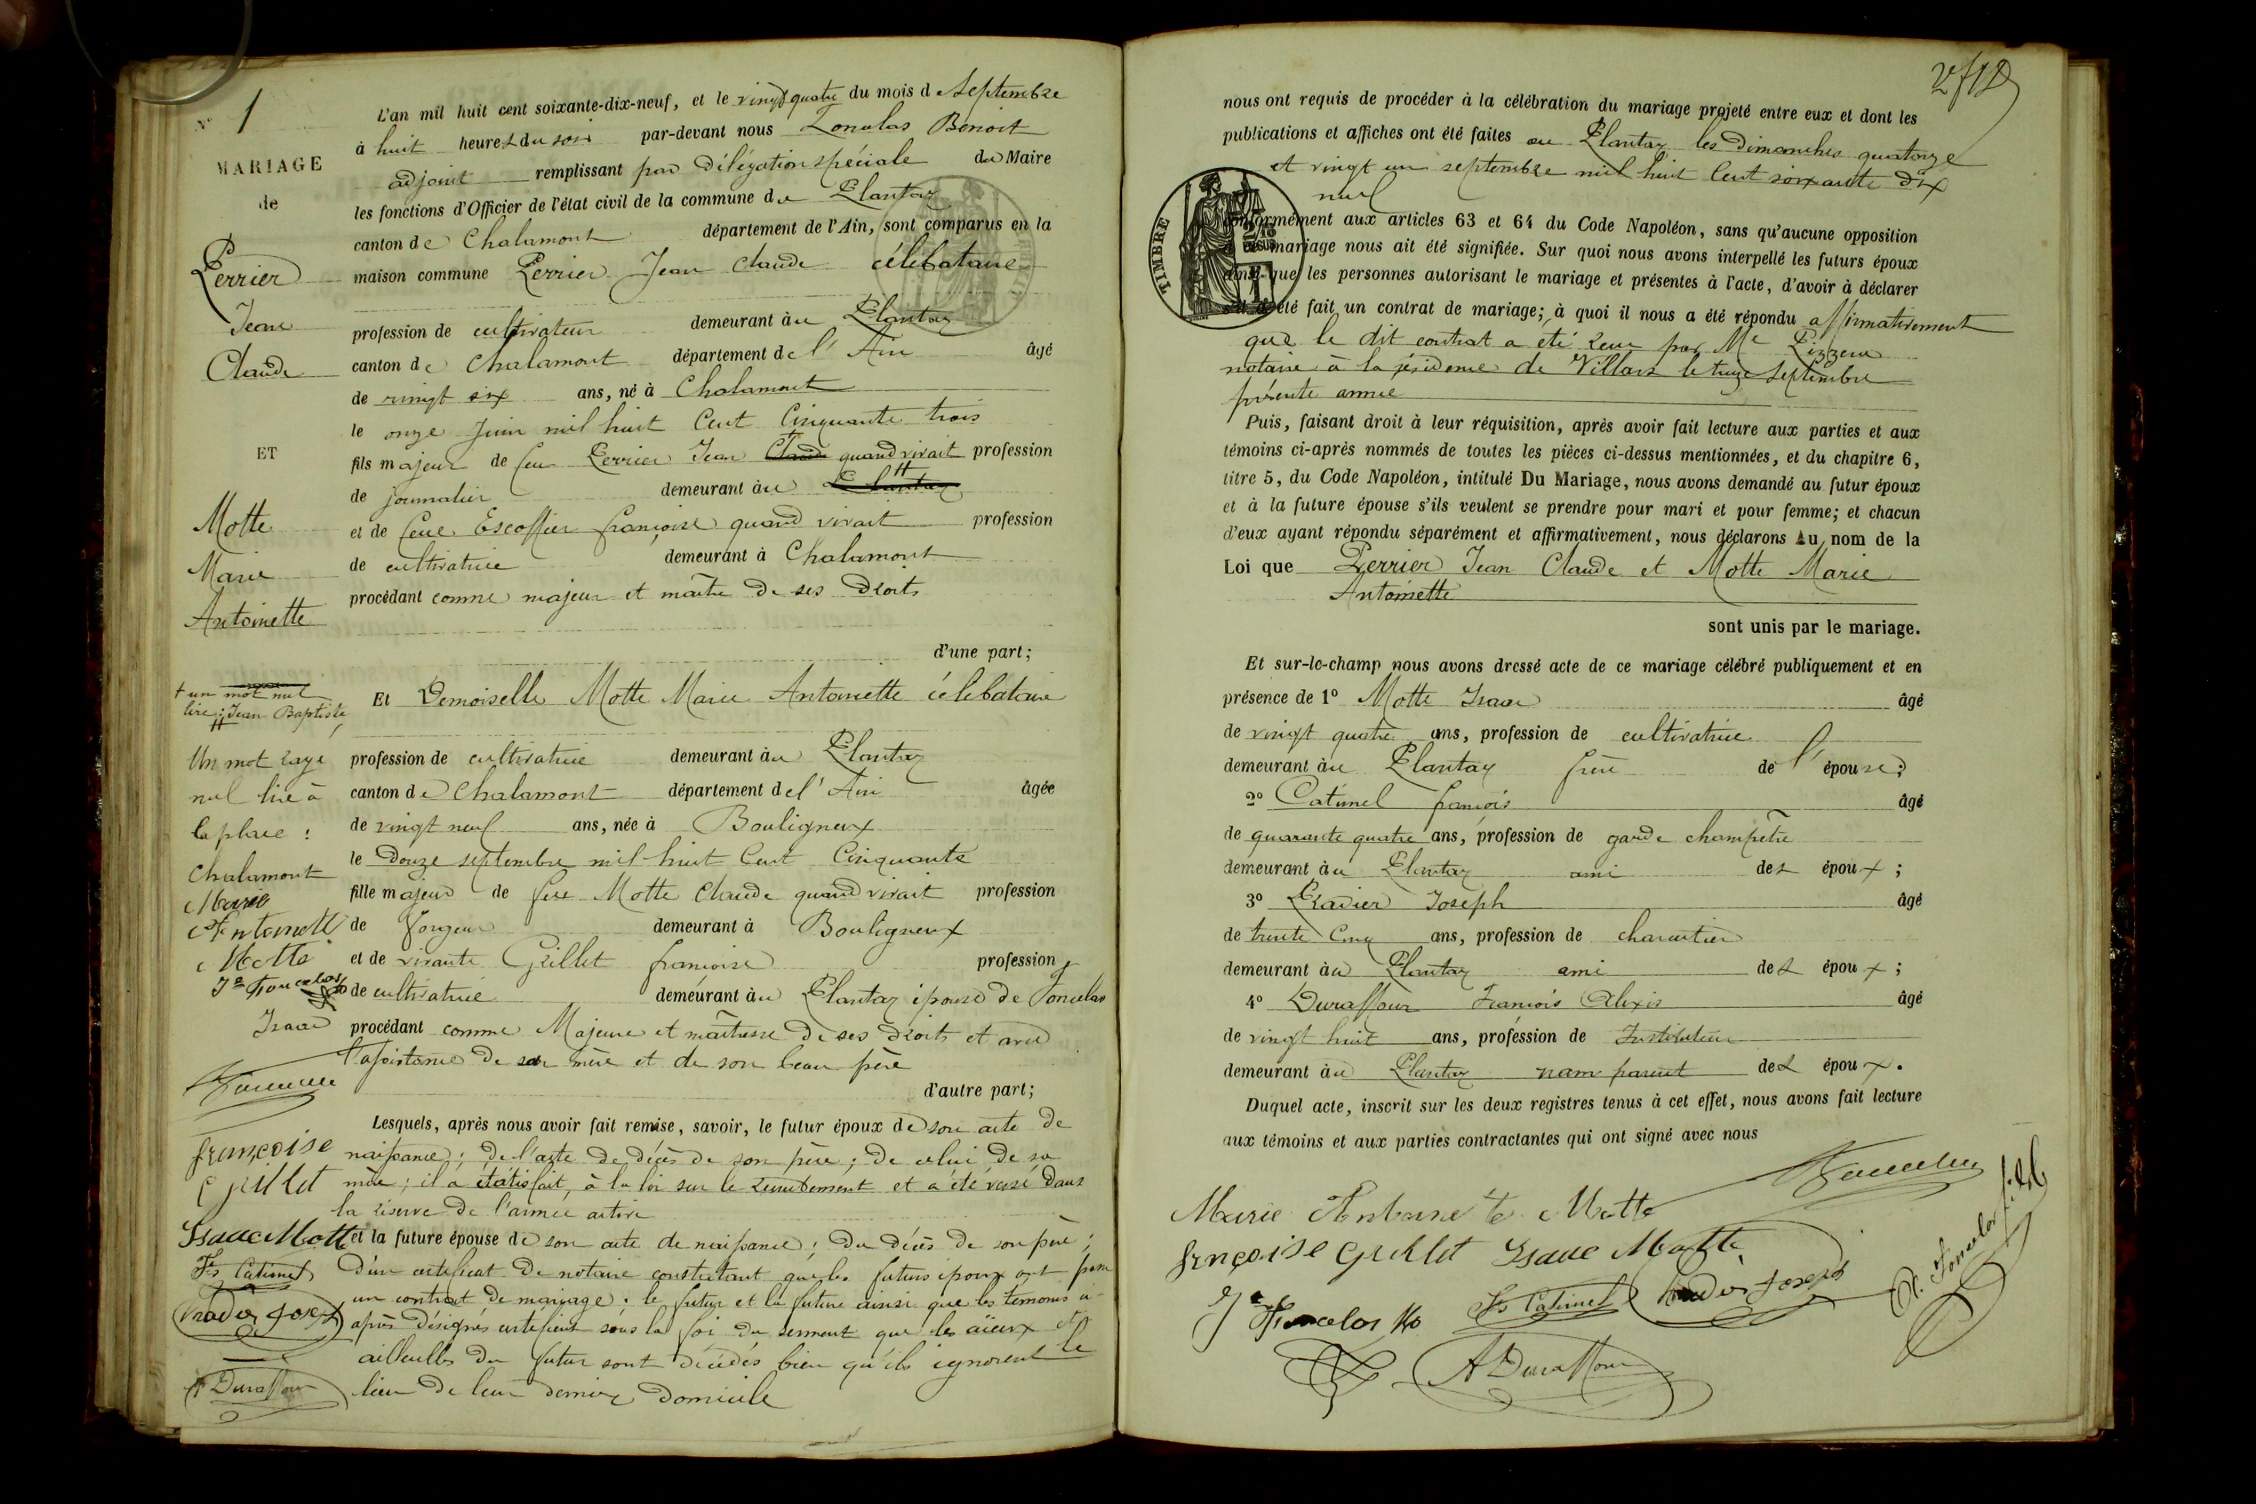 N° 1
MARIAGE
de
Perrier
Jean
Claude
ET
Motte
Marie
Antoinette
+ un mot nul
lire : Jean Baptiste
Un mot rayé
nul lire à
la place :
Chalamont
Marie
Antoinette
Motte
Isaac
françoise
Grillet
Isaac Motte
Fs Catimel
A Duraffour
L'an mil huit cent soixante-dix-neuf, et le vingt quatre du mois de Septembre
à huit heures du soir par-devant nous Benoit
adjoint remplissant par Délégation spéciale du Maire
les fonctions d'Officier de l'état civil de la commune du Plantay
canton de Chalamont département de l'Ain, sont comparus en la
maison commune Perrier Jean Claude célibataire
profession de cultivateur demeurant au Plantay
canton de Chalamont département de l'Ain âgé
de vingt six ans, né à Chalamont
le onze juin mil huit Cent Cinquante trois
fils majeur de feu Perrier Jean Claude quand vivait profession
de journalier demeurant au Plantay
et de feue Escoffier françoise quand vivait profession
de cultivatrice demeurant à Chalamont
procédant comme majeur et maître de ses Droits
d'une part;
Et Demoiselle Motte Marie Antoinette célibataire
profession de cultivatrice demeurant au Plantay
canton de Chalamont département de l'Ain âgée
de vingt neuf ans, née à Bouligneux
le Douze septembre mil huit Cent Cinquante
fille majeure de feu Motte Claude quand vivait profession
de demeurant à Bouligneux
et de vivante Grillet françoise profession
de cultivatrice demeurant au Plantay épouse de Joncelas
procédant comme Majeure et maîtresse de ses Droits et avec
l'assistance de sa mère et de son beau père
d'autre part;
Lesquels, après nous avoir fait remise, savoir, le futur époux de son acte de
naissance ; De l'acte de décès de son père ; De celui de sa
mère ; il a satisfait, à la loi sur le recrutement et a été versé dans
la réserve de l'armée active
et la future épouse de son acte de naissance ; Du décès de son père ;
D'un certificat De notaire constatant que les futurs époux ont passé
un contrat de mariage. le futur et la future ainsi que les témoins ci-
après désignés certifient sous la foi du serment que les aïeux et
aïeulles du futur sont décédés bien qu'ils ignorent le
lieu de leur dernier Domicile
nous ont requis de procéder à la célébration du mariage projeté entre eux et dont les
publications et affiches ont été faites au Plantay les Dimanches quatorze
et vingt un septembre mil huit Cent soixante dix
neuf
TIMBRE
conformément aux articles 63 et 64 du Code Napoléon, sans qu'aucune opposition
à ce mariage nous ait été signifiée. Sur quoi nous avons interpellé les futurs époux
ainsi que les personnes autorisant le mariage et présentes à l'acte, d'avoir à déclarer
s'il a été fait un contrat de mariage; à quoi il nous a été répondu affirmativement
que le dit contrat a été reçu par Me
notaire à la résidence de Villars le treize Septembre
présente année
Puis, faisant droit à leur réquisition, après avoir fait lecture aux parties et aux
témoins ci-après nommés de toutes les pièces ci-dessus mentionnées, et du chapitre 6,
titre 5, du Code Napoléon, intitulé Du Mariage, nous avons demandé au futur époux
et à la future épouse s'ils veulent se prendre pour mari et pour femme; et chacun
d'eux ayant répondu séparément et affirmativement, nous déclarons Au nom de la
Loi que Perrier Jean Claude et Motte Marie
Antoinette
sont unis par le mariage.
Et sur-le-champ nous avons dressé acte de ce mariage célébré publiquement et en
présence de 1° Motte Isaac âgé
de vingt quatre ans, profession de cultivatrice
demeurant au Plantay frère de l'épouse ;
2° Catimel françois âgé
de quarante quatre ans, profession de garde champêtre
demeurant au Plantay ami des époux ;
3° Joseph âgé
de trente cinq ans, profession de charcutier
demeurant au Plantay ami des époux ;
4° Duraffour François Alexis âgé
de vingt huit ans, profession de Instituteur
demeurant au Plantay non parent des époux.
Duquel acte, inscrit sur les deux registres tenus à cet effet, nous avons fait lecture
aux témoins et aux parties contractantes qui ont signé avec nous
Marie Antoinette Motte
françoise Grillet Isaac Motte
Fs Catimel
A Duraffour